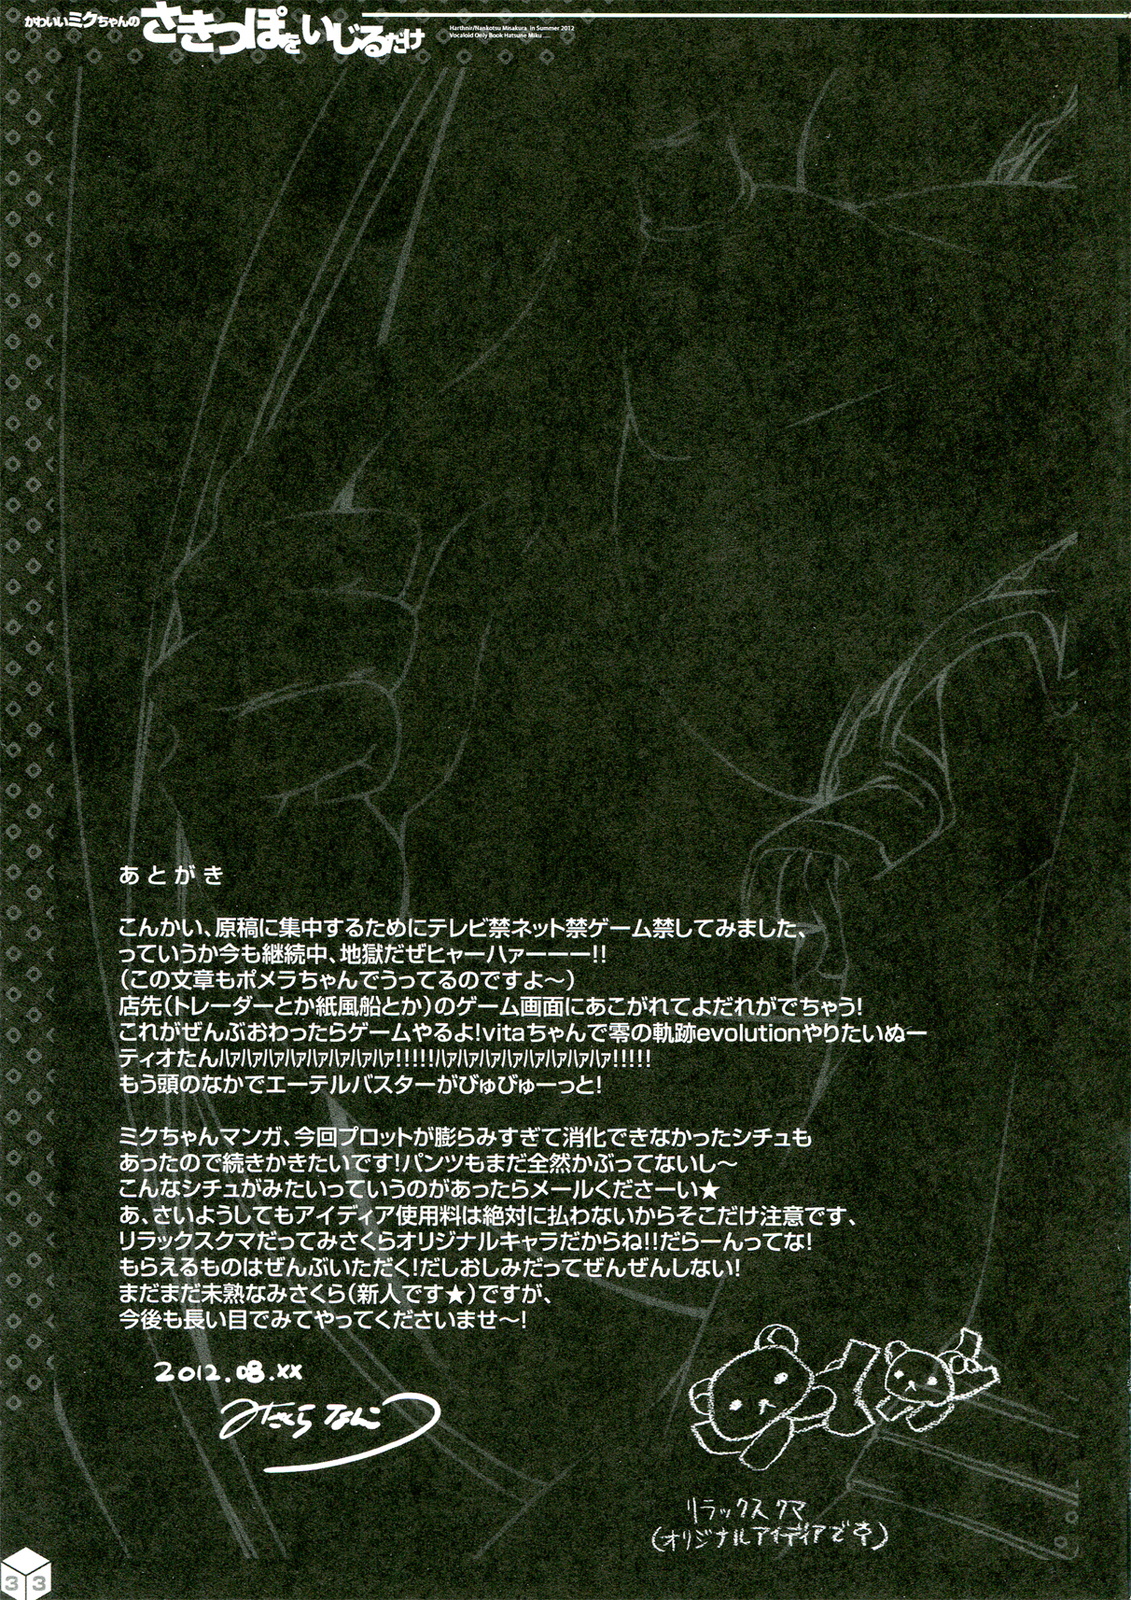 かわいいミクちゃんの
さきっぽをいじるだけ
Harthnir/Nankotsu Misakura in Summer 2012
Vocaloid Only Book Hatsune Miku ....
あとがき
こんかい、原稿に集中するためにテレビ禁ネット禁ゲーム禁してみました、
っていうか今も継続中、地獄だぜヒャーハァーーー!!
(この文章もポメラちゃんでうってるのですよ～)
店先(トレーダーとか紙風船とか)のゲーム画面にあこがれてよだれがでちゃう!
これがぜんぶおわったらゲームやるよ!vitaちゃんで零の軌跡evolutionやりたいぬー
ティオたんﾊｧﾊｧﾊｧﾊｧﾊｧﾊｧﾊｧﾊｧ!!!!!ﾊｧﾊｧﾊｧﾊｧﾊｧﾊｧﾊｧﾊｧ!!!!!
もう頭のなかでエーテルバスターがびゅびゅーっと!
ミクちゃんマンガ、今回プロットが膨らみすぎて消化できなかったシチュも
あったので続きかきたいです!パンツもまだ全然かぶってないし～
こんなシチュがみたいっていうのがあったらメールくださーい★
あ、さいようしてもアイディア使用料は絶対に払わないからそこだけ注意です、
リラックスクマだってみさくらオリジナルキャラだからね!!だらーんってな!
もらえるものはぜんぶいただく!だしおしみだってぜんぜんしない!
まだまだ未熟なみさくら(新人です★)ですが、
今後も長い目でみてやってくださいませ～!
2012.08.xx
みさくらなんこつ
リラックスクマ
(オリジナルアイディアです)
33